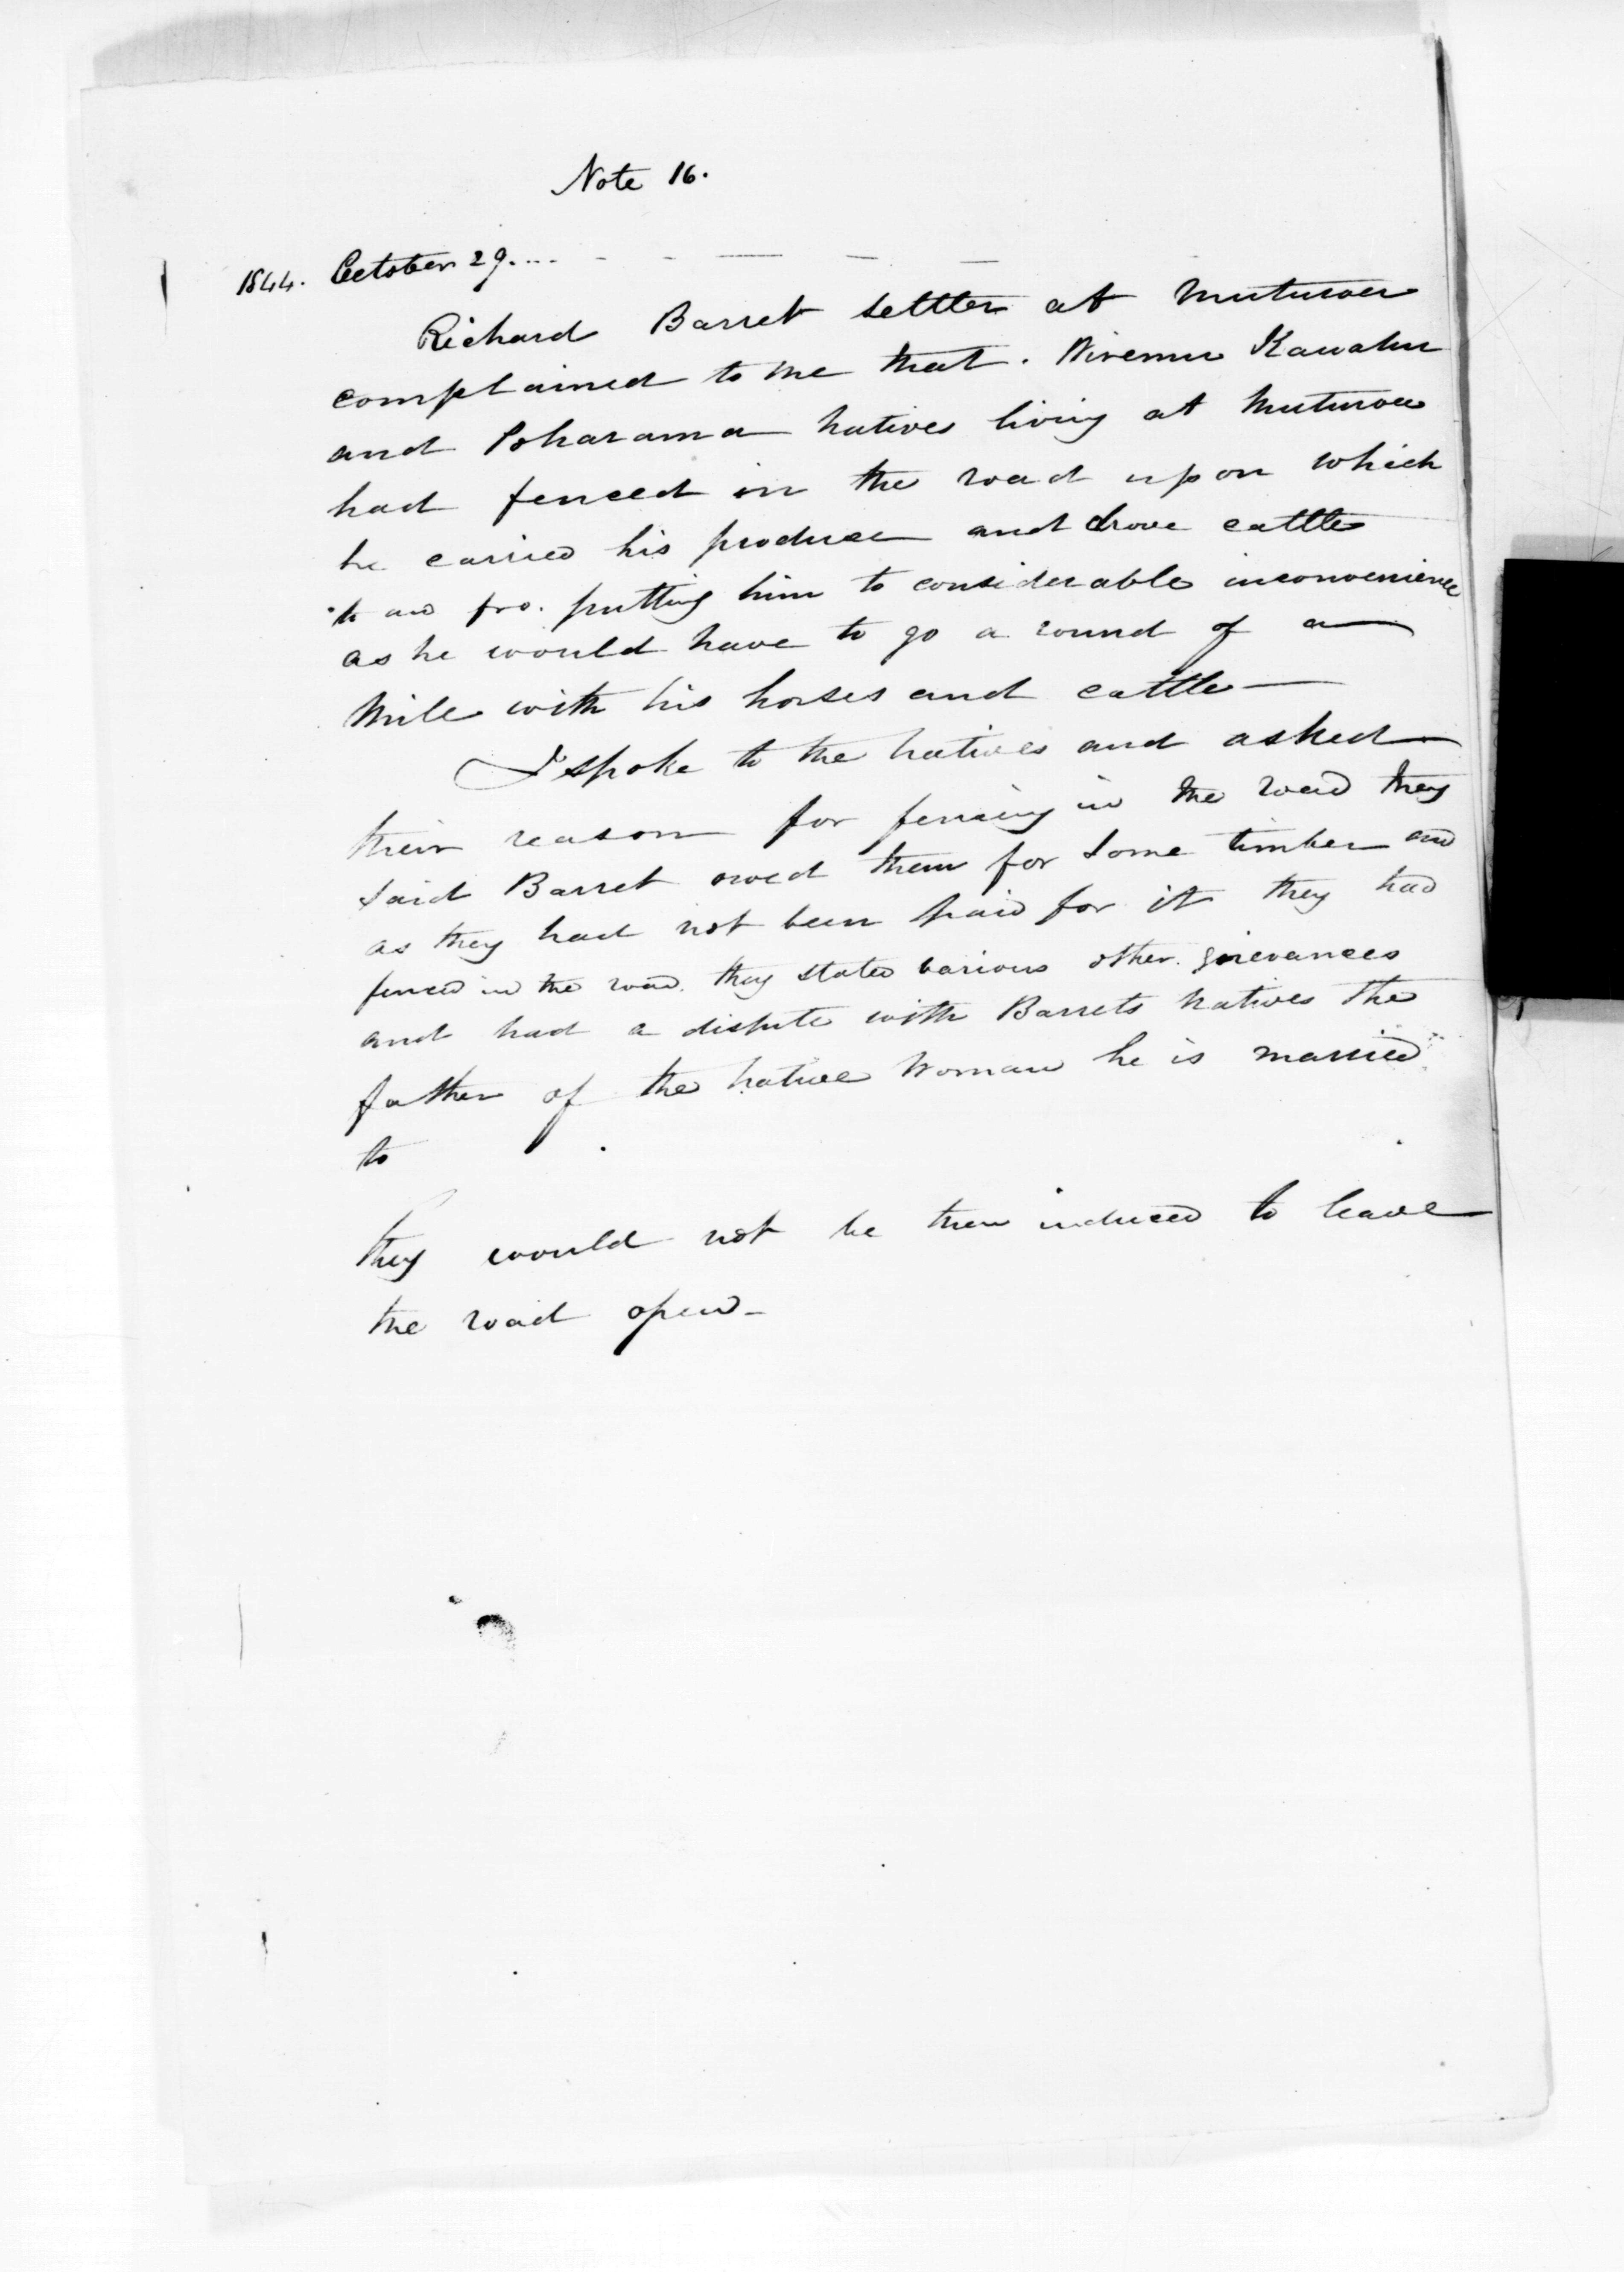 Note 16.
1844. October 29. ...
Richard Barret settler at Muturoa
complained to me that . Wiremu Kawaho
and Poharama natives living at Muturoa
had fenced in the road upon which
he carried his produce and drove cattle
to and fro. putting him to considerable inconvenience
as he would have to go a round of a
mile with his horses and cattle —
I spoke to the natives and asked
their reason for fencing in the road they
said Barret owed them for some timber and
as they had not been paid for it they had
fenced in the road. they stated various other grievances
and had a dispute with Barrets natives the
father of the native woman he is married
to
They would not be then induced to leave
the road open —